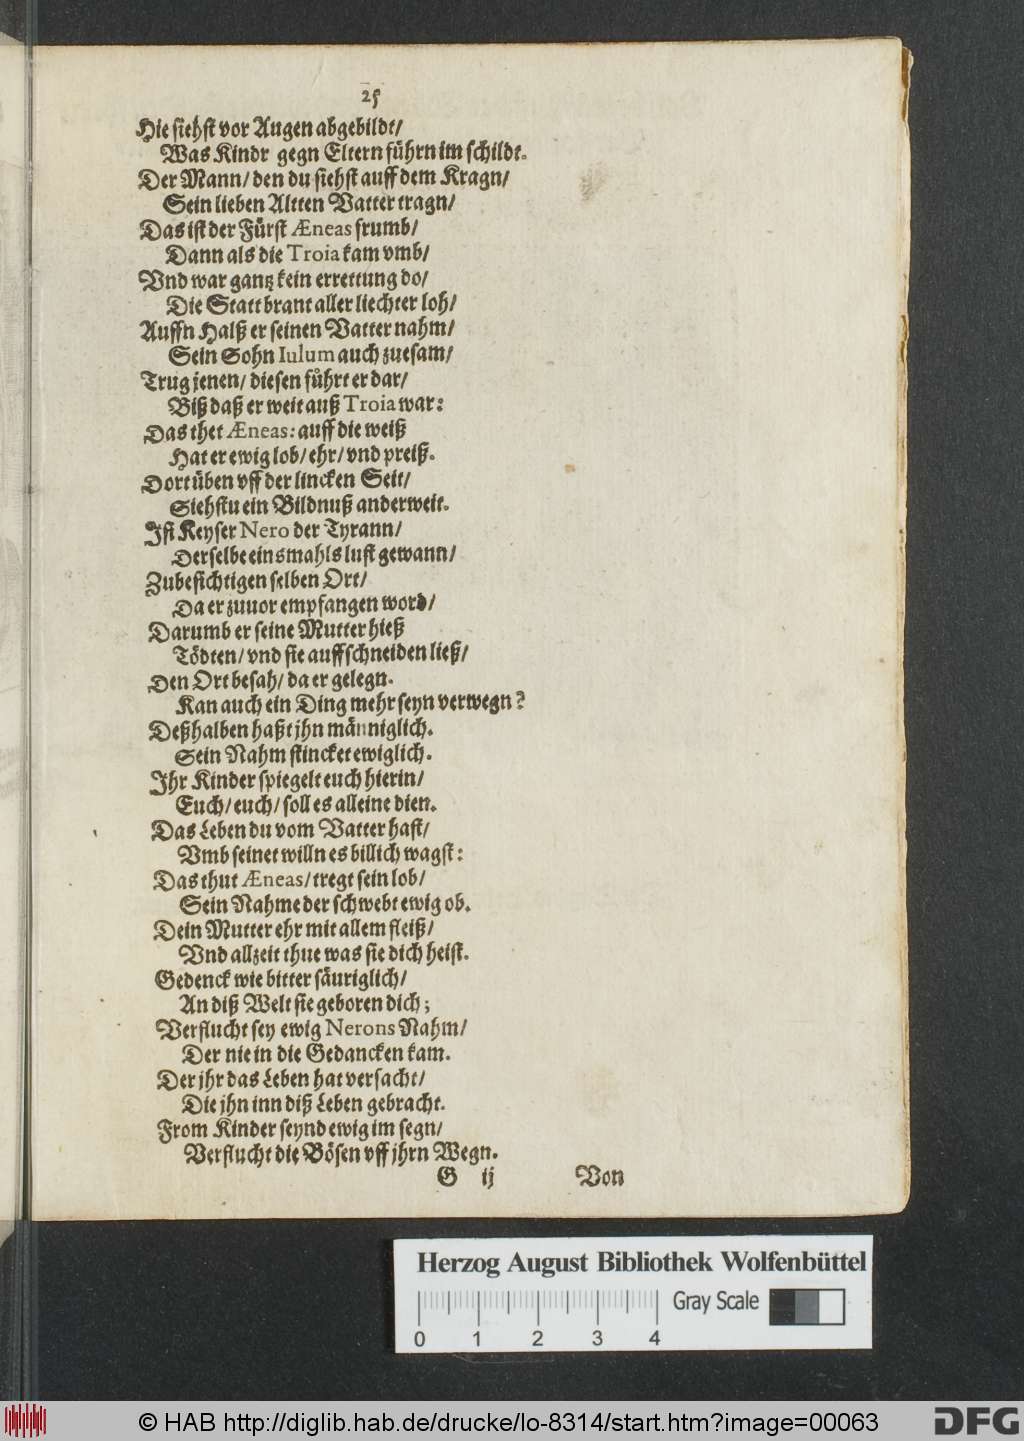 25
Hie siehst vor Augen abgebildt/
Was Kindr gegn Eltern führn im schildt.
Der Mann/ den du siehst auff dem Kragn/
Sein lieben Altten Vatter tragn/
Das ist der Fürst Æneas frumb/
Dann als die Troia kam vmb/
Vnd war gantz kein errettung do/
Die Statt brant aller liechter loh/
Auffn Halß er seinen Vatter nahm/
Sein Sohn Iulum auch zuesam/
Trug jenen/ diesen fůhrt er dar/
Biß daß er weit auß Troia war:
Das thet Æneas: auff die weiß
Hat er ewig lob/ ehr/ vnd preiß.
Dort üben vff der lincken Seit/
Siehstu ein Bildnuß anderweit.
Ist Keyser Nero der Tyrann/
Derselbe einsmahls lust gewann/
Zubesichtigen selben Ort/
Da er zuuor empfangen word/
Darumb er seine Mutter hieß
Tödten/ vnd sie auffschneiden ließ/
Den Ort besah/ da er gelegn.
Kan auch ein Ding mehr seyn verwegn?
Deßhalben haßt jhn männiglich.
Sein Nahm stincket ewiglich.
Ihr Kinder spiegelt euch hierin/
Euch/ euch/ soll es alleine dien.
Das Leben du vom Vatter hast/
Vmb seinet willn es billich wagst:
Das thut Æneas/ tregt sein lob/
Sein Nahme der schwebt ewig ob.
Dein Mutter ehr mit allem fleiß/
Vnd allzeit thue was sie dich heist.
Gedenck wie bitter säuriglich/
An diß Welt sie geboren dich;
Verflucht sey ewig Nerons Nahm/
Der nie in die Gedancken kam.
Der jhr das Leben hat versacht/
Die jhn inn diß Leben gebracht.
From Kinder seynd ewig im segn/
Verflucht die Bösen vff jhrn Wegn.
G ij Von
Herzog August Bibliothek Wolfenbüttel
Gray Scale
0 1 2 3 4
© HAB http://diglib.hab.de/drucke/lo-8314/start.htm?image=00063
DFG